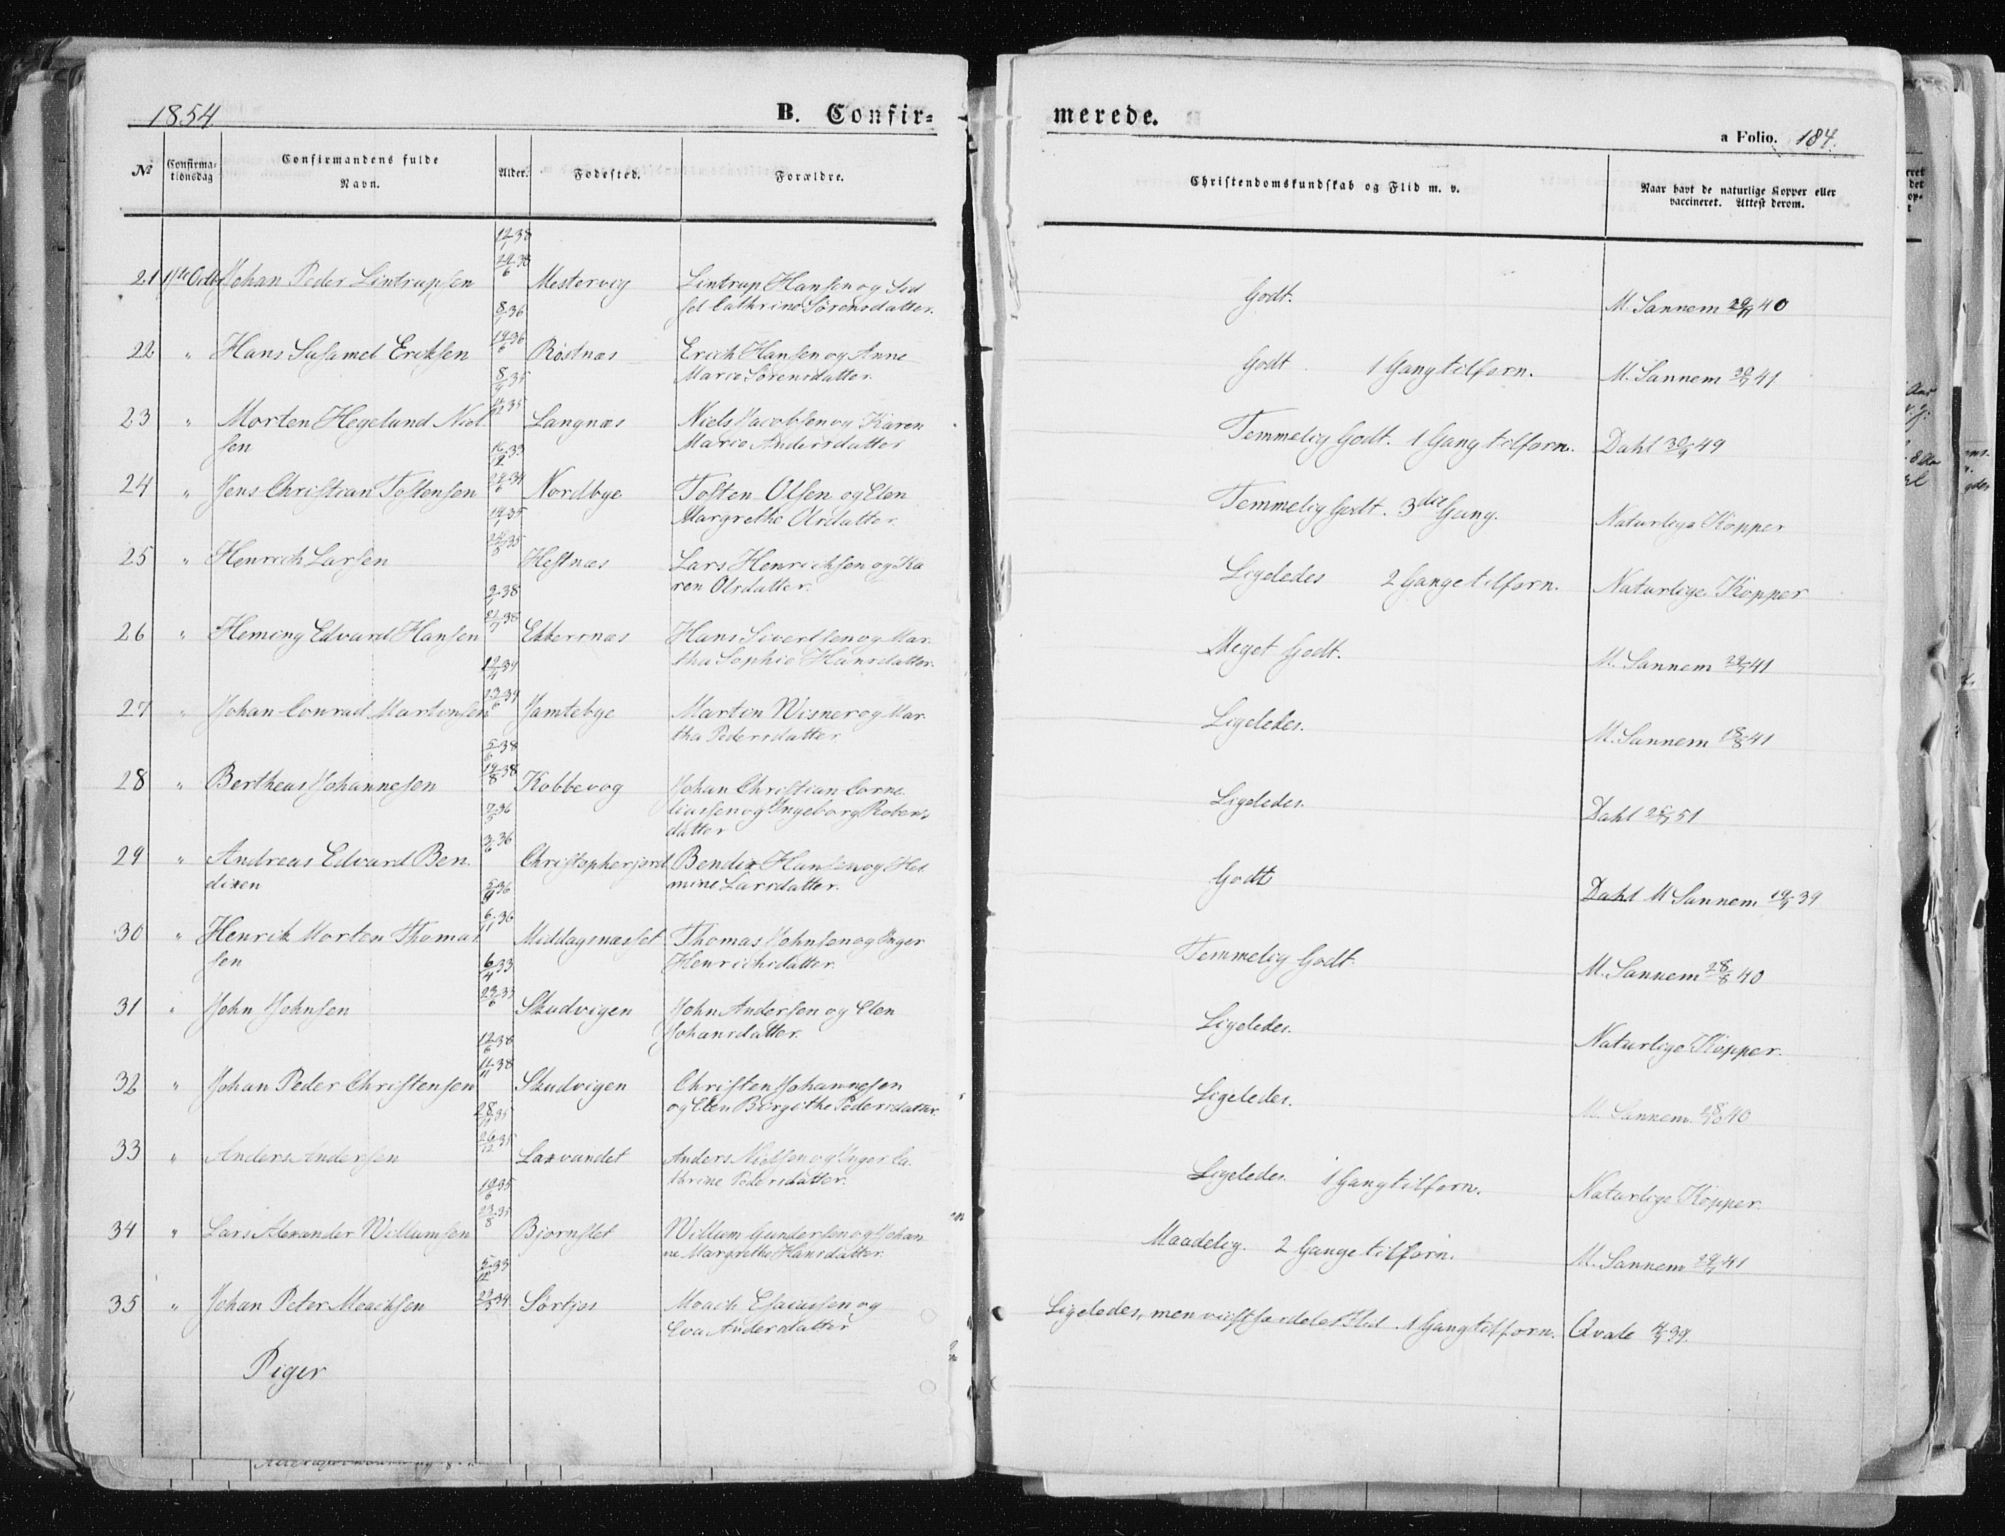 1854
B. Confir-
merede.
a Folio. 184.
No
Confirma-
tionsdag
Confirmandens fulde
Navn.
Alder.
Fødested.
Forældre.
Christendomskundskab og Flid m. v.
Naar havt de naturlige Kopper eller
vaccineret. Attest derom.
21 1ste Octbr Johan Peder Lintrupsen Mestervig Lintrup Hansen og Sid
sel Cathrine Sørensdatter. Godt. M. Sannem 40
22 " Hans Susamel Eriksen Røstnæs Erich Hansen og Anne
Marie Sørensdatter Godt 1 Gang tilforn. M. Sannem 41
23 " Morten Hegelund Niel Langnæs Niels Jacobsen og Karen
sen Marie Andersdatter Temmelig Godt. 1 Gang tilforn. Dahl 49
24 " Jens Christian Tostensen Nordbye Tosten Olsen og Elen
Margrethe Olsdatter. Temmelig Godt. 3die Gang. Naturlige Kopper
25 " Henrich Larsen Hestnæs Lars Henrichsen og Ka
ren Olsdatter. Ligeledes 2 Gange tilforn. Naturlige Kopper
26 " Heming Edvard Hansen Ekkernæs Hans Sivertsen og Mar
tha Sophie Hansdatter. Meget Godt. M. Sannem 41
27 " Johan Conrad Martensen Jamtebye Martin Wisner og Mar
tha Pedersdatter Ligeledes. M. Sannem 41
28 " Bertheus Johannesen Kobbevog Johan Christian Corne
liussen og Ingeborg Robens
datter Ligeledes. Dahl 51
29 " Andreas Edvard Ben Christopherjord Bendix Hansen og Hel
dixen mine Larsdatter. Godt Dahl M Sannem 39
30 " Henrik Morten Thomas Middagsnæsset Thomas Johnsen og Inger
sen Henrichsdatter. Temmelig Godt. M. Sannem 28/8 40
31 " John Johnsen Skudvigen John Andersen og Elen
Johansdatter. Ligeledes. Naturlige Kopper.
32 " Johan Peder Christensen Skudvigen Christen Johannesen
og Elen Birgithe Pedersdatter. Ligeledes. M. Sannem 40
33 " Anders Andersen Laxvandet Anders Nielsen og Inger Ca
thrine Pedersdatter. Ligeledes. 1 Gang tilforn. Naturlige Kopper.
34 " Lars Alexander Willumsen Bjørnslet Willum Gundersen og Johan
ne Margrethe Hansdatter. Maadelig. 2 Gange tilforn. M. Sannem 41
35 " Johan Peter Moachsen Sørfjos Moach Esaiasen og
Eva Andersdatter Ligeledes, men Flid. 1 Gang tilforn. Qvale 39.
Piger